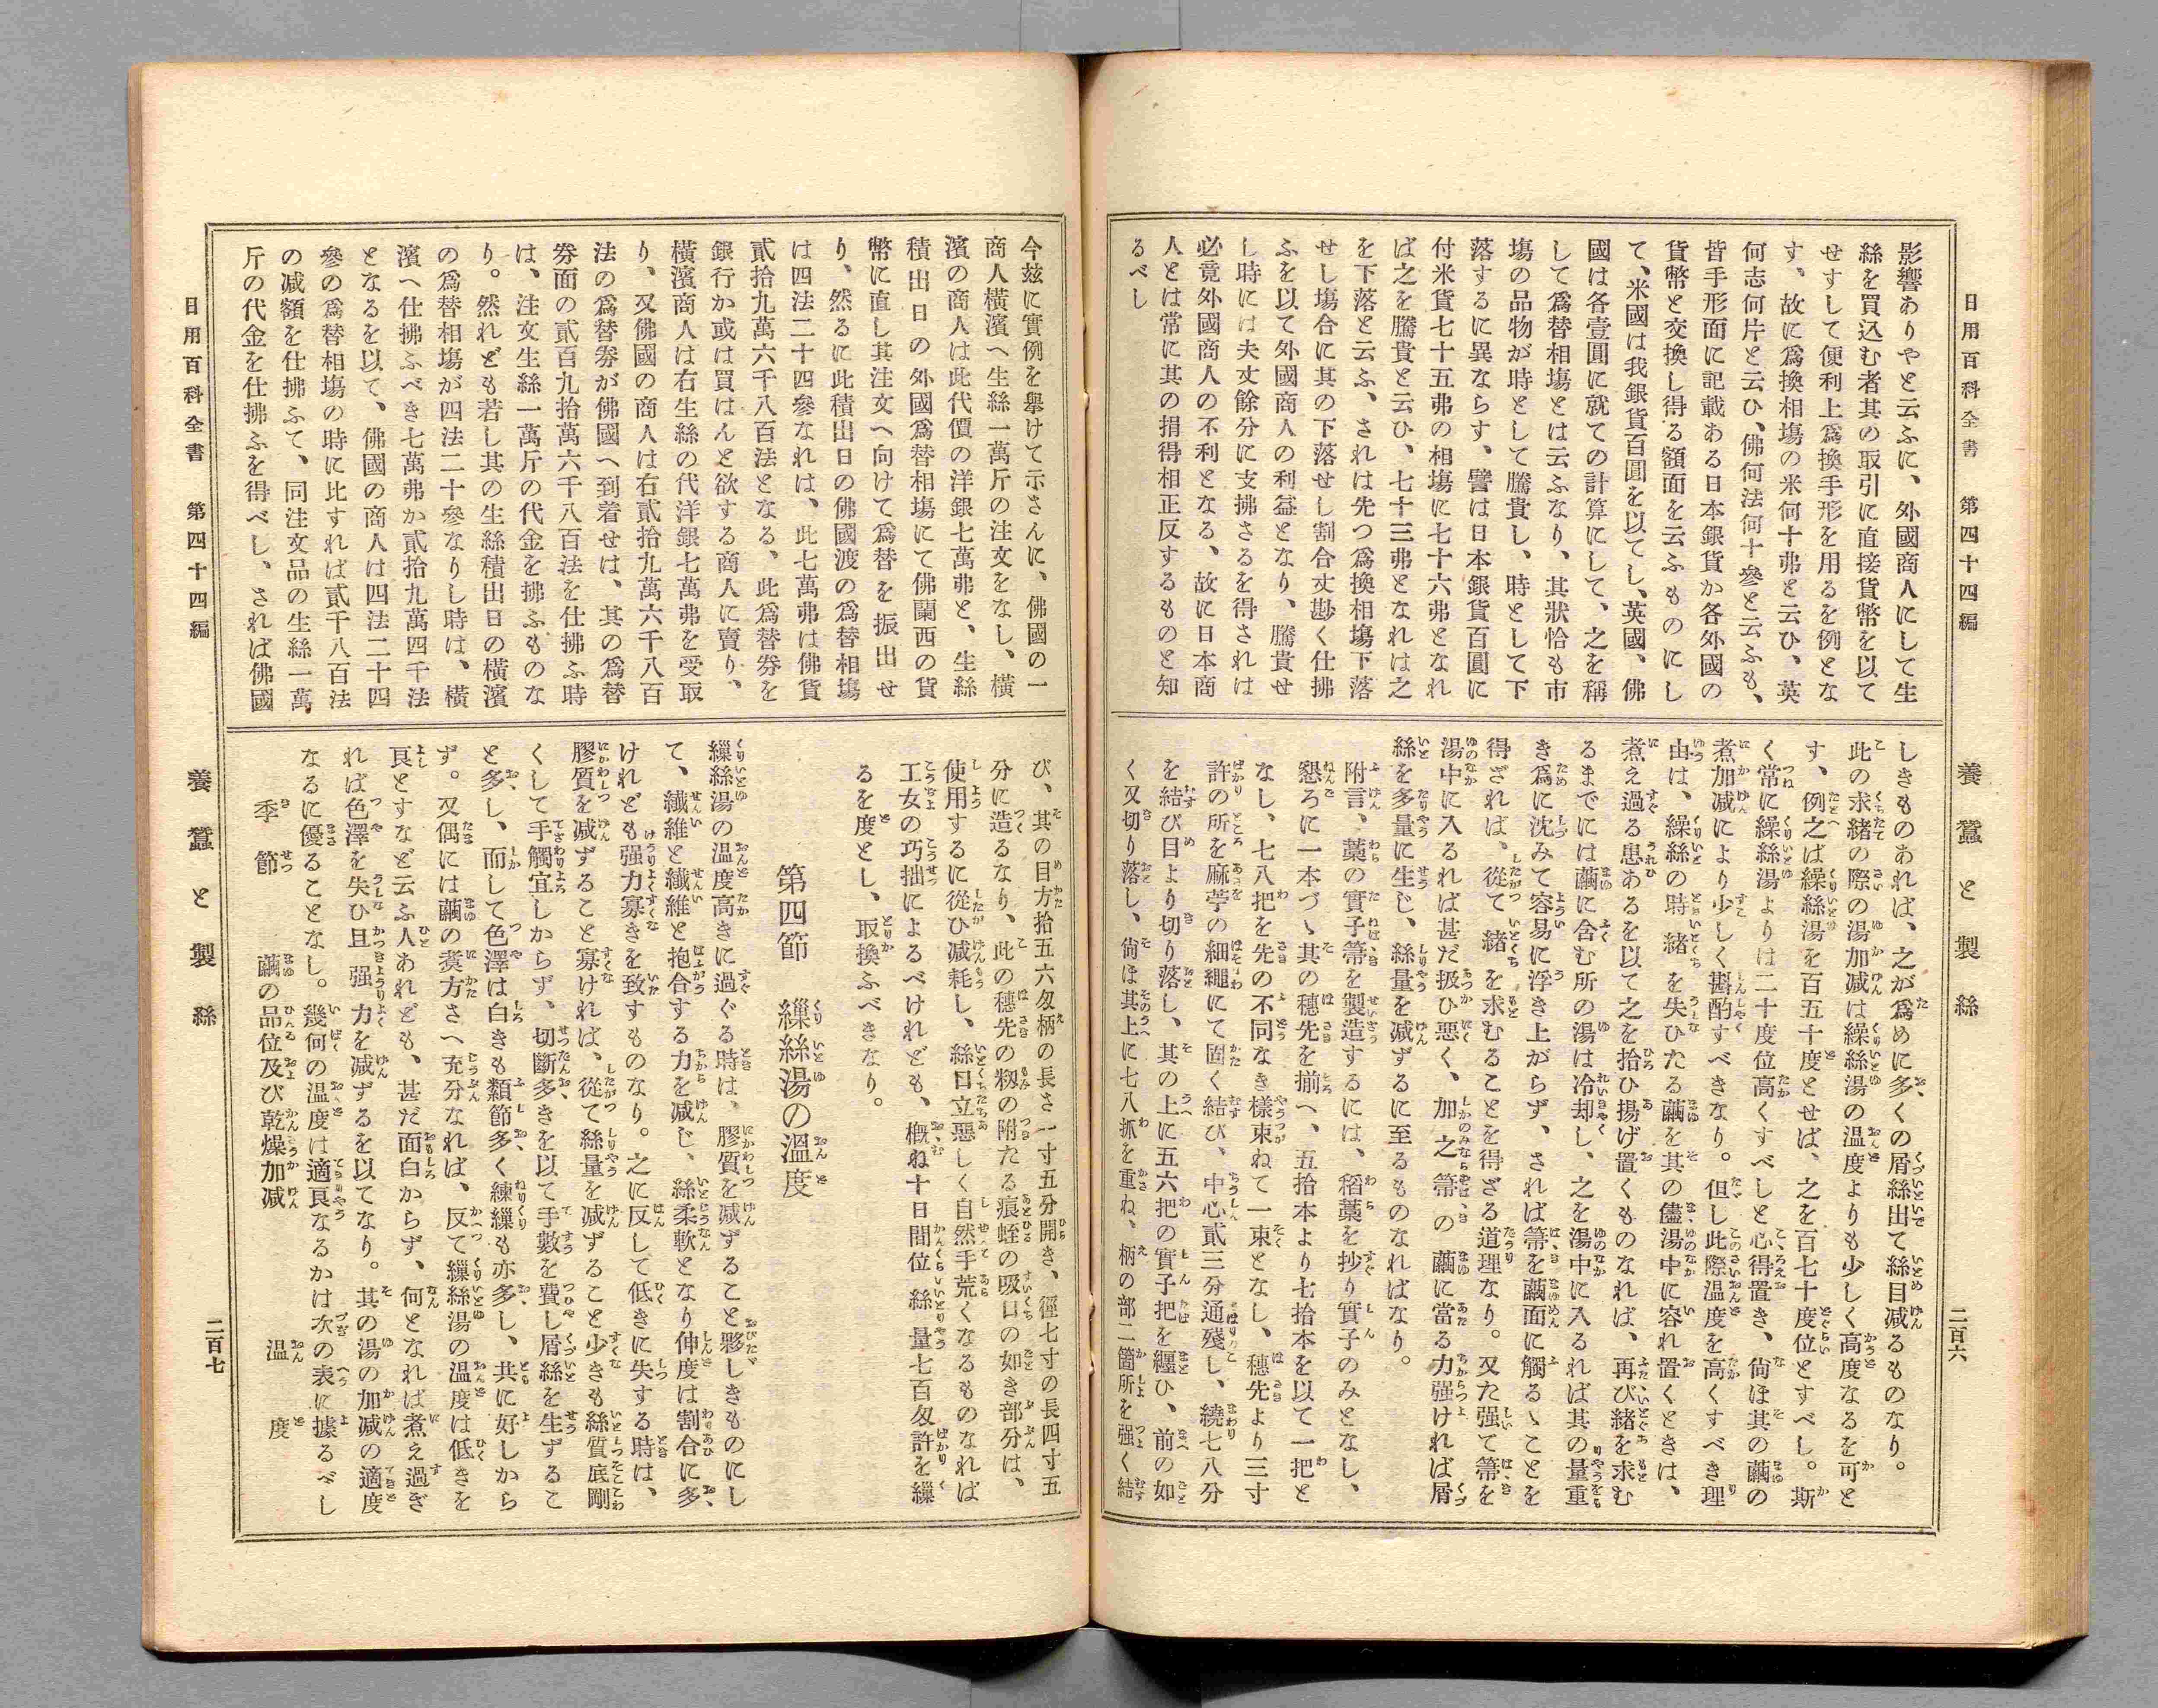 日用百科全書　第四十四編
養蠶と製絲
二百六
影響ありやと云ふに、外國商人にして生
絲を買込む者其の取引に直接貨幣を以て
せすして便利上爲換手形を用るを例とな
す、故に爲換相塲の米何十弗と云ひ、英
何志何片と云ひ、佛何法何十參と云ふも、
皆手形面に記載ある日本銀貨か各外國の
貨幣と交換し得る額面を云ふものにし
て、米國は我銀貨百圓を以てし、英國、佛
國は各壹圓に就ての計算にして、之を稱
して爲替相塲とは云ふなり、其狀恰も市
塲の品物が時として騰貴し、時として下
落するに異ならす、譬は日本銀貨百圓に
付米貨七十五弗の相塲に七十六弗となれ
ば之を騰貴と云ひ、七十三弗となれは之
を下落と云ふ、されは先つ爲換相塲下落
せし塲合に其の下落せし割合丈尠く仕拂
ふを以て外國商人の利益となり、騰貴せ
し時には夫丈餘分に支拂さるを得されは
必竟外國商人の不利となる、故に日本商
人とは常に其の損得相正反するものと知
るべし
しきものあれば、之が爲めに多くの屑絲出て絲目減るものなり。
此の求緖の際の湯加減は繰絲湯の溫度よりも少しく高度なるを可と
す、例之ば繰絲湯を百五十度とせば、之を百七十度位とすべし。斯
く常に繰絲湯よりは二十度位高くすべしと心得置き、尙ほ其の繭の
煮加減により少しく斟酌すべきなり。但し此際溫度を高くすべき理
由は、繰絲の時緖を失ひたる繭を其の儘湯中に容れ置くときは、
煮え過る患あるを以て之を拾ひ揚げ置くものなれば、再び緖を求む
るまでには繭に含む所の湯は冷却し、之を湯中に入るれば其の量重
き爲に沈みて容易に浮き上がらず、されば箒を繭面に觸るヽことを
得ざれば、從て緖を求むることを得ざる道理なり。又た强て箒を
湯中に入るれば甚だ扱ひ悪く、加之箒の繭に當る力强ければ屑
絲を多量に生じ、絲量を减ずるに至るものなればなり。
附言、藁の實子箒を製造するには、稻藁を抄り實子のみとなし、
懇ろに一本づヽ其の穗先を揃へ、五拾本より七拾本を以て一把と
なし、七八把を先の不同なき樣束ねて一束となし、穗先より三寸
許の所を麻苧の細繩にて固く結び、中心貳三分通殘し、繞七八分
を結び目より切り落し、其の上に五六把の實子把を纒ひ、前の如
く又切り落し、尙ほ其上に七八抓を重ね、柄の部二箇所を强く結
今玆に實例を擧けて示さんに、佛國の一
商人橫濱へ生絲一萬斤の注文をなし、橫
濱の商人は此代價の洋銀七萬弗と、生絲
積出日の外國爲替相塲にて佛蘭西の貨
幣に直し其注文へ向けて爲替を振出せ
り、然るに此積出日の佛國渡の爲替相塲
は四法二十四參なれは、此七萬弗は佛貨
貳拾九萬六千八百法となる、此爲替券を
銀行か或は買はんと欲する商人に賣り、
橫濱商人は右生絲の代洋銀七萬弗を受取
り、又佛國の商人は右貳拾九萬六千八百
法の爲替券が佛國へ到着せは、其の爲替
券面の貳百九拾萬六千八百法を仕拂ふ時
は、注文生絲一萬斤の代金を拂ふものな
り。然れども若し其の生絲積出日の橫濱
の爲替相塲が四法二十參なりし時は、橫
濱へ仕拂ふべき七萬弗か貳拾九萬四千法
となるを以て、佛國の商人は四法二十四
參の爲替相塲の時に比すれば貳千八百法
の减額を仕拂ふて、同注文品の生絲一萬
斤の代金を仕拂ふを得べし、されば佛國
び、其の目方拾五六匁柄の長さ一寸五分開き、徑七寸の長四寸五
分に造るなり、此の穗先の籾の附たる痕蛭の吸口の如き部分は、
使用するに從ひ减耗し、絲口立惡しく自然手荒くなるものなれば
工女の巧拙によるべけれども、槪ね十日間位絲量七百匁許を繰
るを度とし、取換ふべきなり。
第四節　繰絲湯の溫度
繰絲湯の溫度高きに過ぐる時は、膠質を减ずること夥しきものにし
て、纖維と纖維と抱合する力を减じ、絲柔軟となり伸度は割合に多
けれども强力寡きを致すものなり。之に反して低きに失する時は、
膠質を减ずること寡ければ、從て絲量を减ずること少きも絲質底剛
くして手觸宜しからず、切斷多きを以て手數を費し屑絲を生ずるこ
と多し、而して色澤は白きも類節多く練繰も亦多し、共に好しから
ず。又偶には繭の煑方さへ充分なれば、反て繰絲湯の溫度は低きを
良とすなど云ふ人あれども、甚だ面白からず、何となれば煮え過ぎ
れば色澤を失ひ且强力を减ずるを以てなり。其の湯の加减の適度
なるに優ることなし。幾何の溫度は適良なるかは次の表に據るべし
季節　繭の品位及び乾燥加减　溫度
日用百科全書　第四十四編
養蠶と製絲
二百七